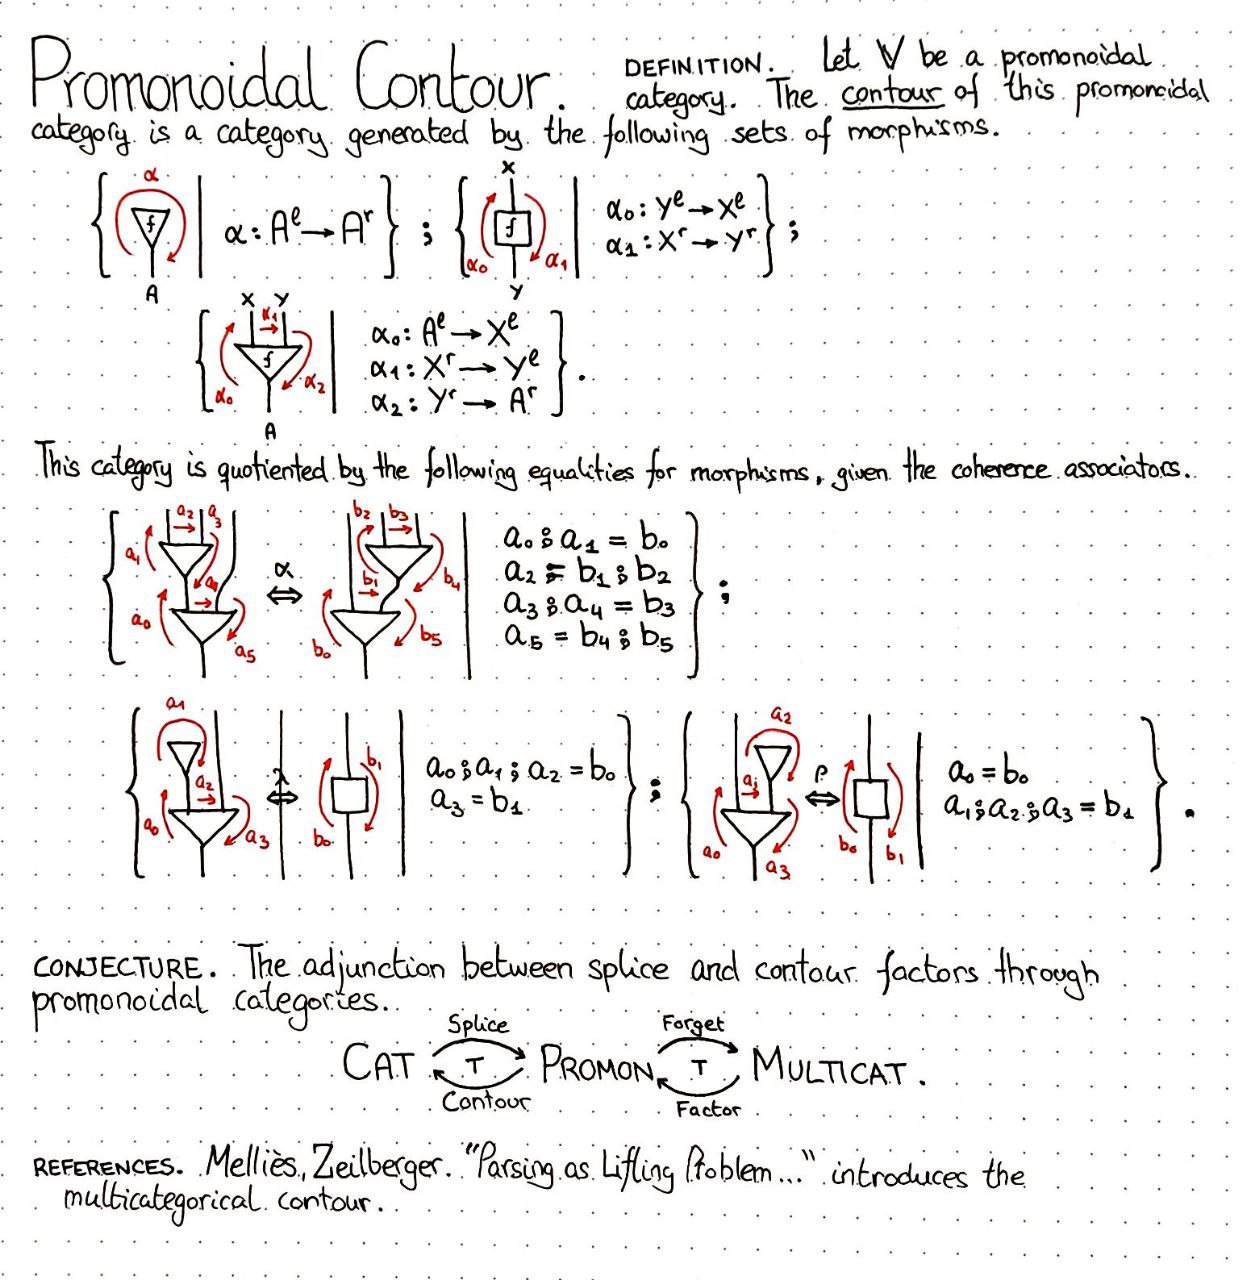 Promonoidal Contour.
DEFINITION. Let V be a promonoidal
category. The contour of this promonoidal
category is a category generated by the following sets of morphisms.
α
f
A
α: Aᵉ→Aʳ
;
X
f
α₀ α₁
Y
α₀: Yᵉ→Xᵉ
α₁: Xʳ→Yʳ
;
X Y
α₁
f
α₀ α₂
A
α₀: Aᵉ→Xᵉ
α₁: Xʳ→Yᵉ
α₂: Yʳ→Aʳ
.
This category is quotiented by the following equalities for morphisms, given the coherence associators.
a₂ a₃
a₁
a₄
a₀
a₅
α
⇔
b₂ b₃
b₁ b₄
b₀ b₅
a₀⨾a₁ = b₀
a₂ = b₁⨾b₂
a₃⨾a₄ = b₃
a₅ = b₄⨾b₅
;
a₁
a₂
a₀ a₃
λ
⇔
b₁
b₀
a₀⨾a₁⨾a₂ = b₀
a₃ = b₁
;
a₂
a₁
a₀
a₃
ρ
⇔
b₀ b₁
a₀ = b₀
a₁⨾a₂⨾a₃ = b₁
.
CONJECTURE. The adjunction between splice and contour factors through
promonoidal categories.
Splice Forget
CAT ⊤ PROMON ⊤ MULTICAT.
Contour Factor
REFERENCES. Melliès, Zeilberger. "Parsing as Lifting Problem..." introduces the
multicategorical contour.